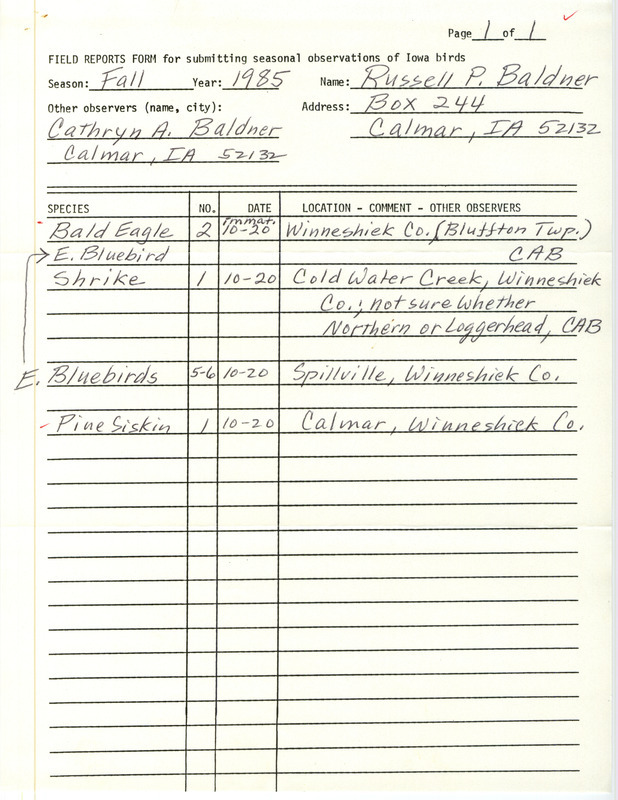 Page 1 of 1
FIELD REPORTS FORM for submitting seasonal observations of Iowa birds
Season: Fall Year: 1985 Name: Russell P. Baldner
Other observers (name, city): Address: Box 244
Cathryn A. Baldner Calmar, IA 52132
Calmar, IA 52132
SPECIES NO. DATE LOCATION - COMMENT - OTHER OBSERVERS
immat.
Bald Eagle 2 10-20 Winneshiek Co. (Bluffton Twp.)
E. Bluebird CAB
Shrike 1 10-20 Cold Water Creek, Winneshiek
Co.; not sure whether
Northern or Loggerhead, CAB
E. Bluebirds 5-6 10-20 Spillville, Winneshiek Co.
Pine Siskin 1 10-20 Calmar, Winneshiek Co.